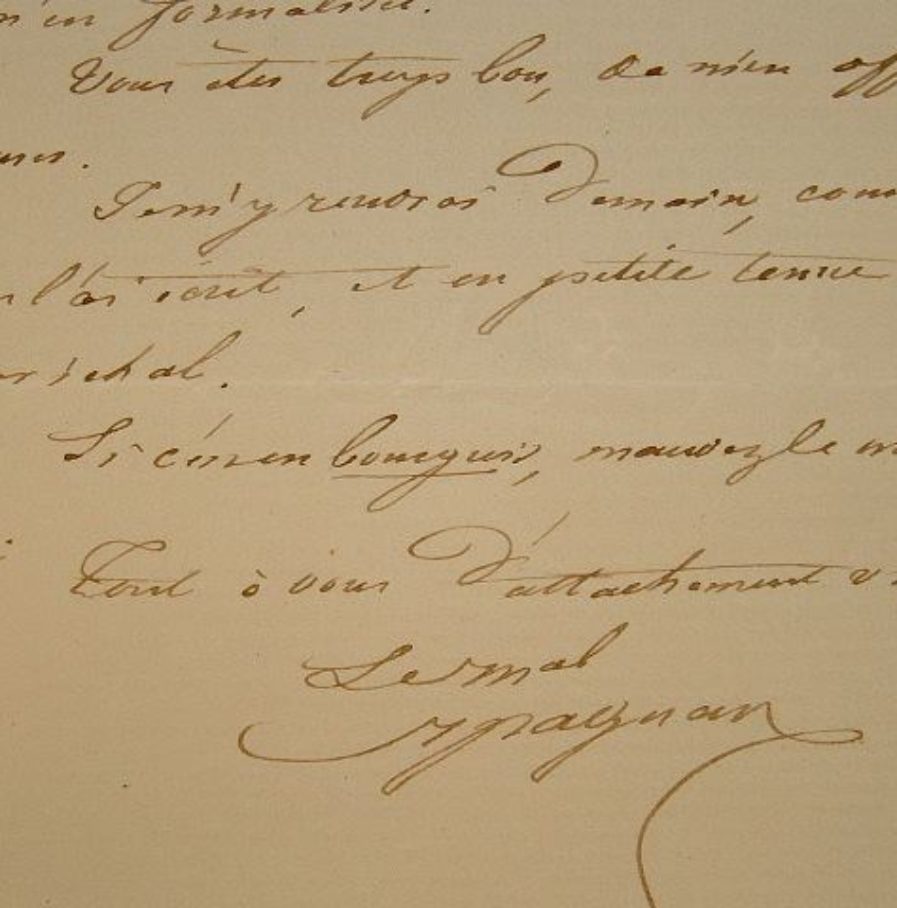 m'en formaliser.
Vous êtes trop bon, de m'en off
Je m'y rendrai Demain, com
l'ai écrit, et en petite tenue
aréchal.
Si c'est en bourgeois, mandez le m
Tout à vous D'attachement
Le Mal
Magnan